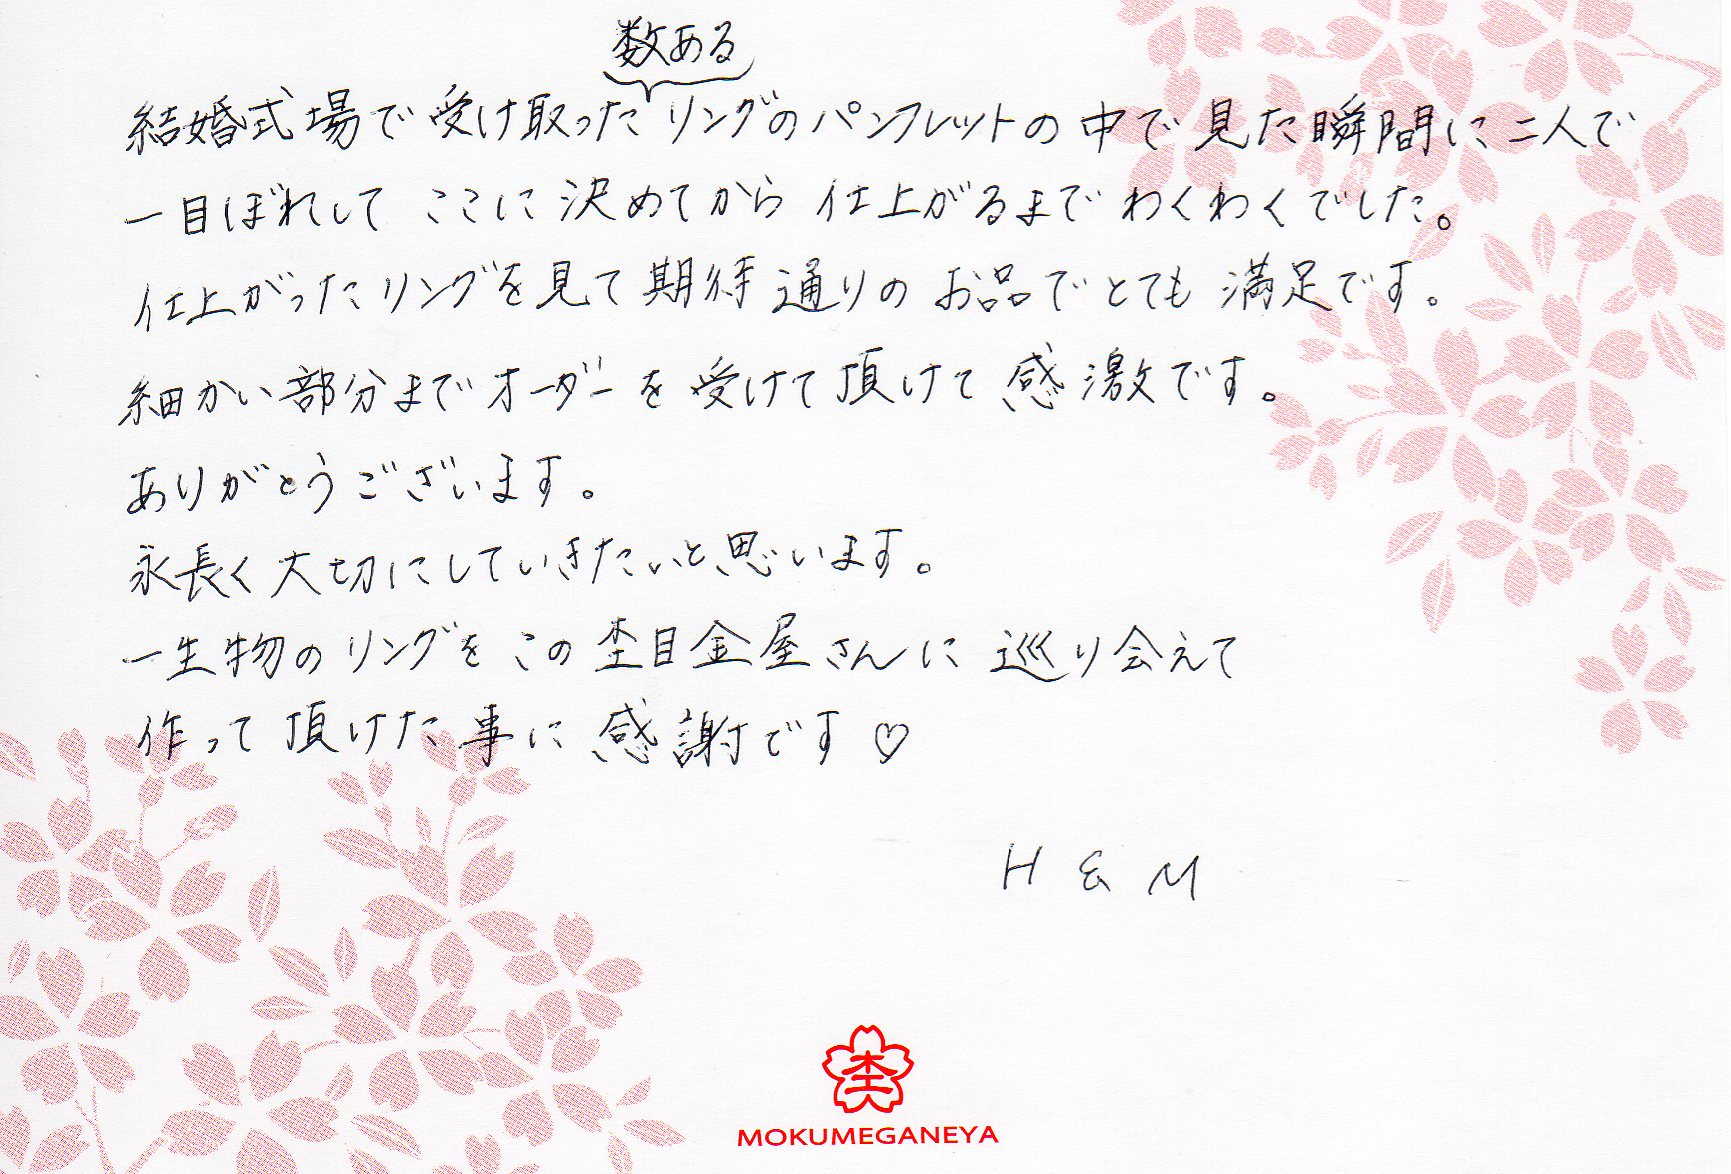 数ある
結婚式場で受け取ったリングのパンフレットの中で見た瞬間に二人で
一目ぼれして ここに決めてから 仕上がるまでわくわくでした。
仕上がったリングを見て期待通りのお品でとても満足です。
細かい部分までオーダーを受けて頂けて感激です。
ありがとうございます。
永長く大切にしていきたいと思います。
一生物のリングをこの杢目金屋さんに巡り会えて
作って頂けた事に感謝です♡
H & M
杢
MOKUMEGANEYA